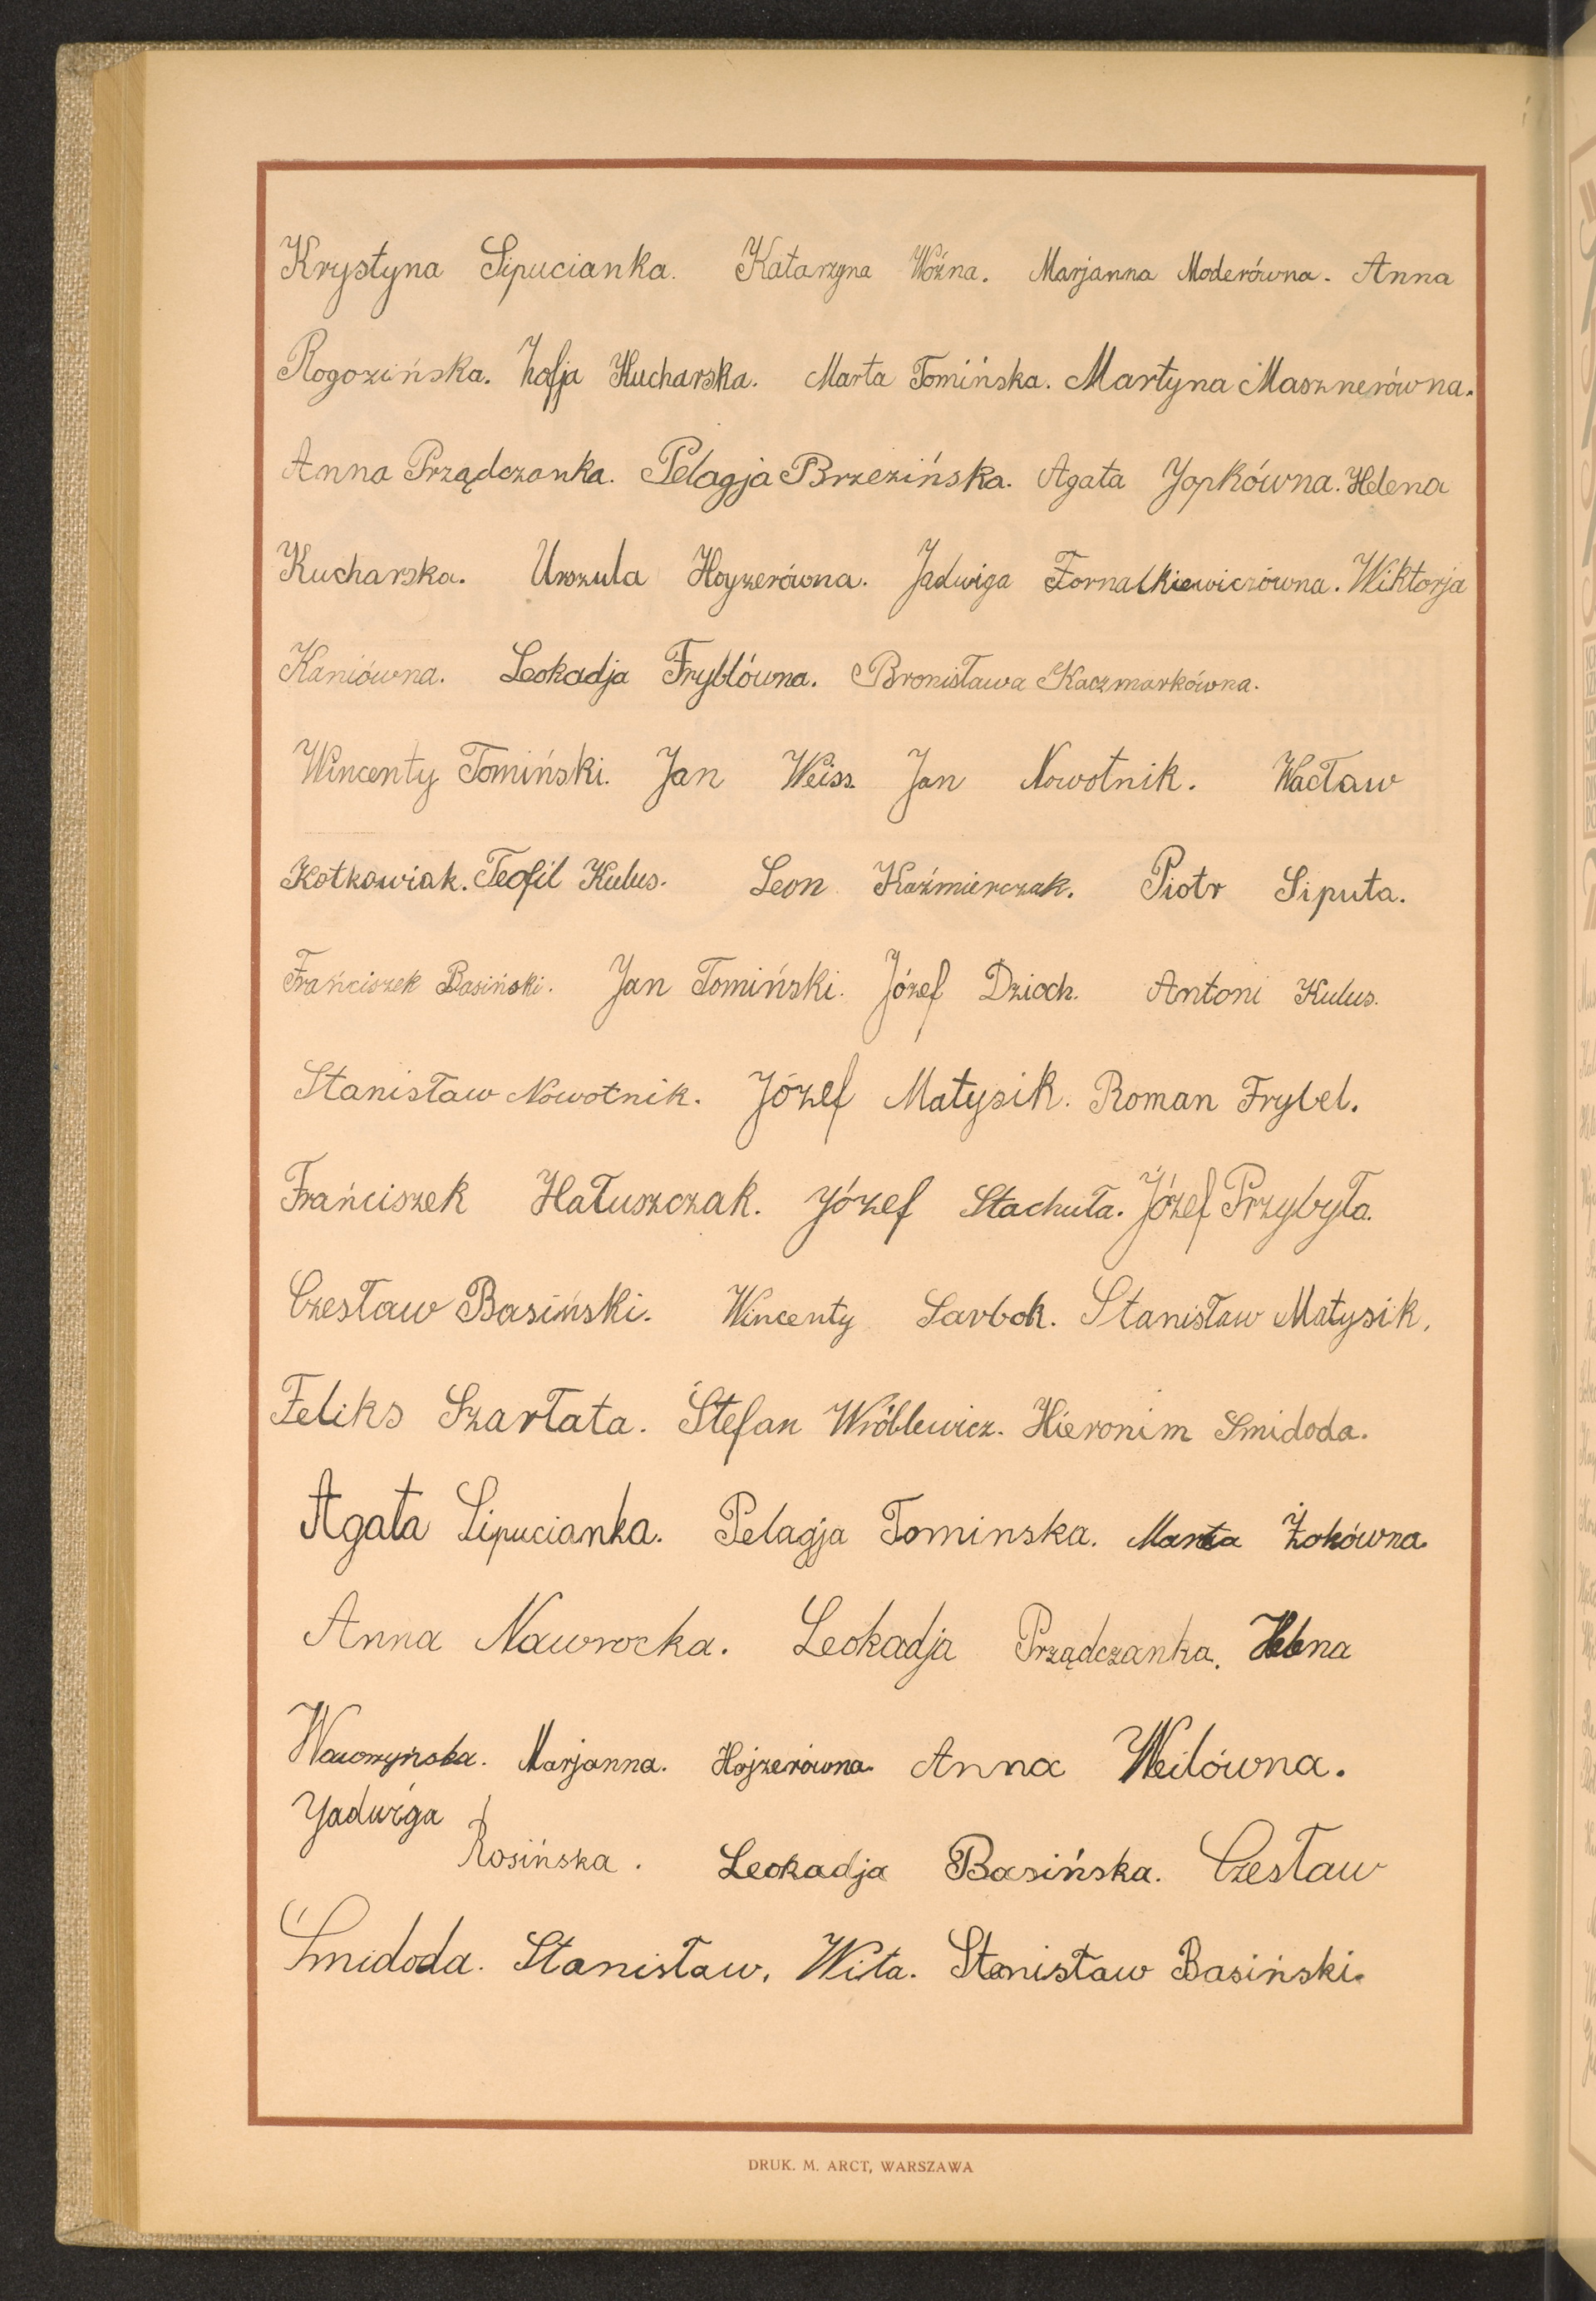 Krystyna Sipucianka. Katarzyna Woźna. Marjanna Moderówna. Anna
Rogozińska. Zofja Kucharska. Marta Tomińska. Martyna Masznerówna.
Anna Prządczanka. Pelagja Brzezińska. Agata Jopkówna. Helena
Kucharska. Urszula Hoyzerówna. Jadwiga Fornalkiewiczówna. Wiktorja
Kaniówna. Leokadja Fryblówna. Bronisława Kaczmarkówna.
Wincenty Tomiński. Jan Weiss. Jan Nowotnik. Wacław
Kotkowiak. Teofil Kulus. Leon Kaźmierczak. Piotr Siputa.
Frańciszek Basiński. Jan Tomiński. Józef Dzioch. Antoni Kulus.
Stanisław Nowotnik. Józef Matysik. Roman Frybel.
Frańciszek Hałuszczak. Józef Stachuła. Józef Przybyła.
Czesław Basiński. Wincenty Sarbok. Stanisław Matysik.
Feliks Szarłata. Stefan Wróblewicz. Hieronim Smidoda.
Agata Sipucianka. Pelagja Tominska. Marta Żokówna.
Anna Nawrocka. Leokadja Prządczanka. Helena
Wawrzyńska. Marjanna. Hojzerówna. Anna Weilówna.
Jadwiga
Rosińska. Leokadja Basińska. Czesław
Śmidoda. Stanisław. Wita. Stanisław Basiński.
DRUK. M. ARCT, WARSZAWA